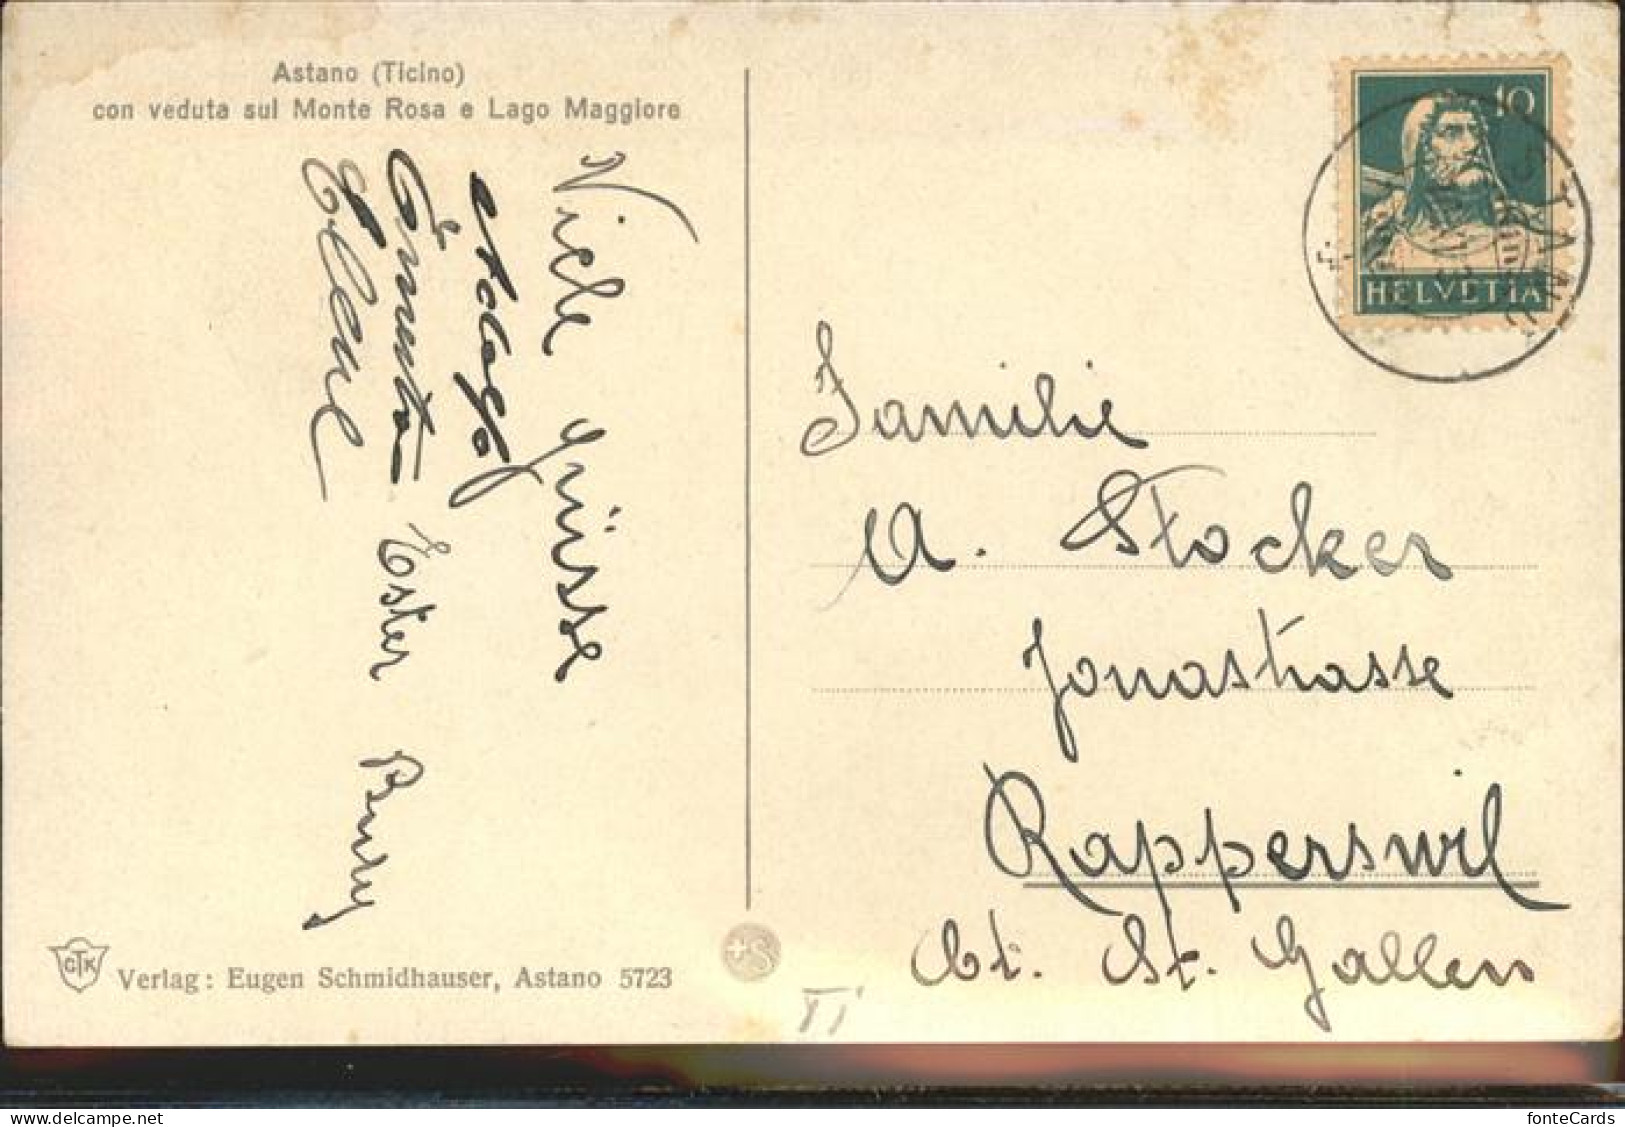 Astano (Ticino)
con veduta sul Monte Rosa e Lago Maggiore
Viele Grüsse
Ester
Elene
10
HELVETIA
ASTANO
Familie
A. Stocker
Jonastrasse
Rapperswil
Ct. St. Gallen
CTK
Verlag: Eugen Schmidhauser, Astano 5723
+S
TI
fonteCards